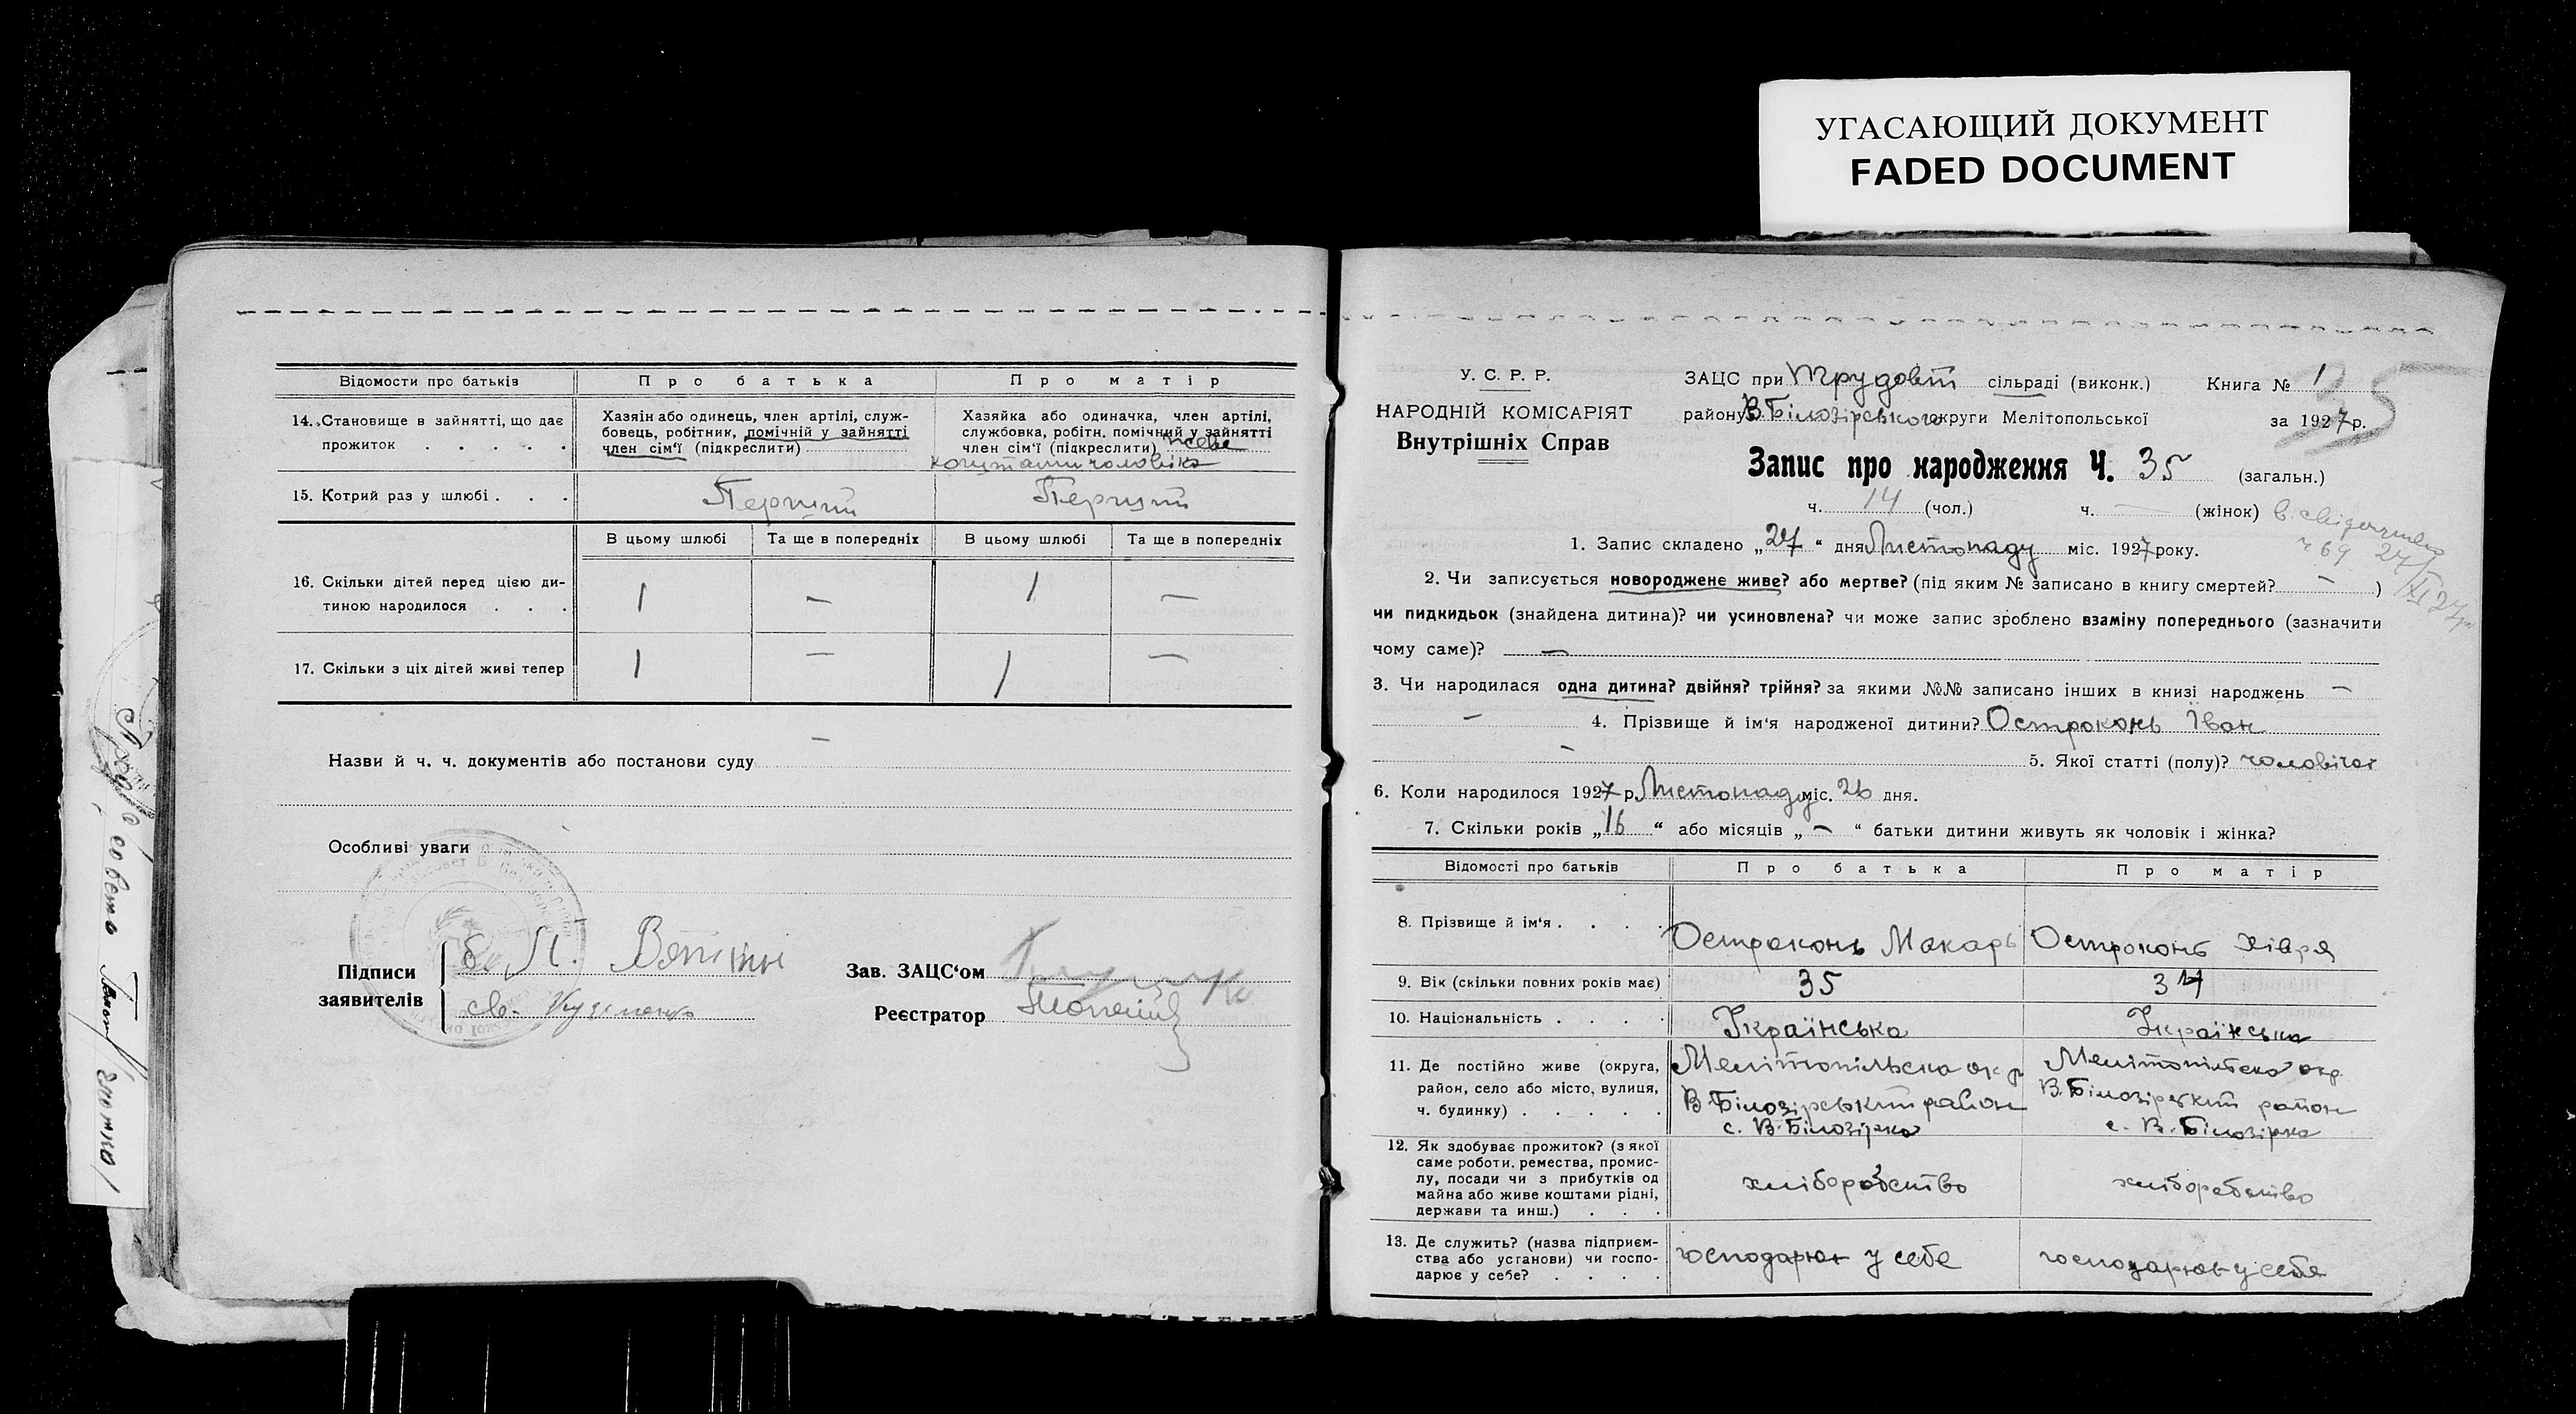 УГАСАЮЩИЙ ДОКУМЕНТ
FADED DOCUMENT
Відомости про батьків
Про батька
Про матір
14. Становище в зайнятті, що дає
прожиток . . . . .
Хазяїн або одинець, член артілі, служ-
бовець, робітник, помічній у зайнятті
член сім'ї (підкреслити)
Хазяйка або одиначка, член артілі,
службовка, робітн. помічний у зайнятті
член сім'ї (підкреслити) живе
коштами чоловіка
15. Котрий раз у шлюбі . . .
Перший
Перший
В цьому шлюбі
Та ще в попередніх
В цьому шлюбі
Та ще в попередніх
16. Скільки дітей перед цією ди-
тиною народилося . . .
1 — 1 —
17. Скільки з ціх дітей живі тепер
1 — 1 —
Назви й ч. ч. документів або постанови суду —
Особливі уваги
Підписи
заявителів
Зав. ЗАЦС'ом
Реєстратор
У. С. Р. Р.
НАРОДНІЙ КОМІСАРІЯТ
Внутрішніх Справ
ЗАЦС при Трудовій сільраді (виконк.)
Книга № 1
35
району В Білозірського округи Мелітопольської
за 1927 р.
Запис про народження Ч. 35 (загальн.)
ч. 14 (чол.) ч. — (жінок)
1. Запис складено „27“ дня Листопаду міс. 1927 року.
2. Чи записується новороджене живе? або мертве? (під яким № записано в книгу смертей? — )
чи пидкидьок (знайдена дитина)? чи усиновлена? чи може запис зроблено взаміну попереднього (зазначити
чому саме)? —
3. Чи народилася одна дитина? двійня? трійня? за якими №№ записано інших в книзі народжень —
— 4. Прізвище й ім'я народженої дитини? Остроконь Іван
— 5. Якої статті (полу)? чоловічої
6. Коли народилося 1927 р. Листопаду міс. 26 дня.
7. Скільки років „16“ або місяців „—“ батьки дитини живуть як чоловік і жінка?
Відомості про батьків
Про батька
Про матір
8. Прізвище й ім'я . . . .
Остроконь Макарь
Остроконь Хівря
9. Вік (скільки повних років має)
35
34
10. Національність . . . .
Українська
Українська
11. Де постійно живе (округа,
район, село або місто, вулиця,
ч. будинку) . . . . .
Мелітопільска окр
В Білозірський район
с. В. Білозірка
Мелітопільска окр.
В. Білозірский район
с. В. Білозірка
12. Як здобуває прожиток? (з якої
саме роботи, ремества, промис-
лу, посади чи з прибутків од
майна або живе коштами рідні,
держави та инш.) . . .
хліборобство
хліборобство
13. Де служить? (назва підприєм-
ства або установи) чи госпо-
дарює у себе? . . . .
господарює у себе
господарює у себе